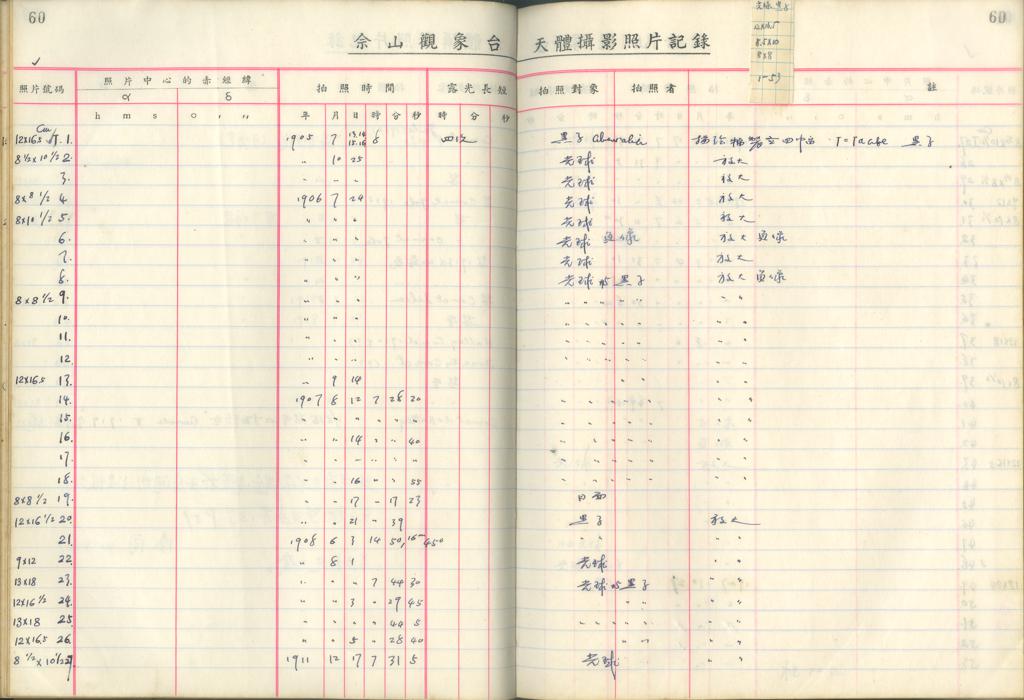 60
60
佘山觀象台 天體攝影照片記錄
12x16.5
8.5x10
8x8
1-53
照片號碼 照片中心的赤經緯 拍照時間 露光長短 拍照對象 拍照者 註
α δ
h m s o , ,, 年 月 日 時 分 秒 時 分 秒
Cm
12x16.5 1. 1905 7 13.14 15.16 8 四次 黑子 T-Taabe 黑子
8 1/2 x 10 1/2 2. " 10 25 光球 放大
3. " " " 光球 放大
8x8 1/2 4 1906 7 24 光球 放大
8x10 1/2 5. " " " 光球 放大
6. " " " 光球 負像 放大 負像
7. " " " 光球 放大
8. " " " 光球 的 黑子 放大 負像
8x8 1/2 9. " " " " " " " " "
10. " " " " " " " " "
11. " " " " " " " " "
12 " " " " " " " " "
12x16.5 13. " 9 14 " " " "
14. 1907 8 12 7 28 20 " " " " " "
15. " " " " " " " " " " " "
16. " " 14 " " 40 " " " " " "
17. " " " " " " " " " " " "
18. " " 16 " " 55 " " " " " "
8x8 1/2 19. " " 17 " 17 23 日面
12x16 1/2 20. " " 21 " 39 黑子 放大
21. 1908 6 3 14 50, 16m 45s " " " "
9x12 22. " 8 1 光球 " "
13x18 23. " " " 7 44 30 光球 的 黑子 " "
12x16 1/2 24. " " 3 " 29 45 " " " "
13x18 25 " " " " 44 5 " " " " " "
12x16.5 26. " " 5 " 28 40 " " " "
8 1/2 x 10 1/2 27. 1911 12 17 7 31 5 光球 " "